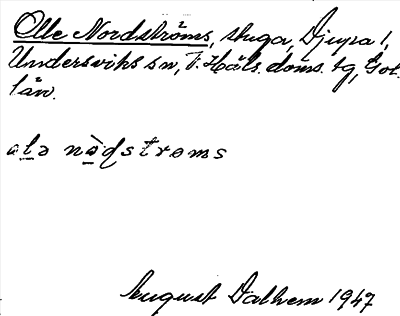 Olle Nordströms, stuga, Djupa 1,
Undersviks sn, V. Häls. doms. tg, Gvl.
län.
olə nɑ̀ḍstrøms
August Dalhem 1947